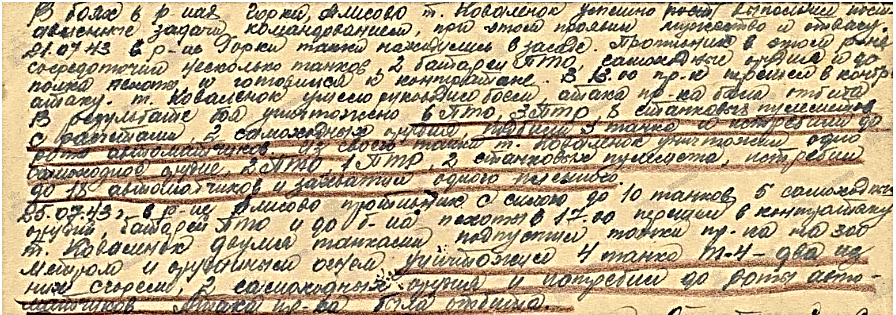 В боях в р-не Горки, Алисово т. Коваленок успешно выполнил
задачи командованием, при этом проявил мужество и отвагу.
21.07.43 в р-не Горки танки находились в засаде. Противник в этом р-не
сосредоточил несколько танков, 2 батареи ПТО, самоходные орудия и до
полка пехоты, и готовился к контратаке. В 13.00 пр-к перешел в контр
атаку. т. Коваленок умело руководил боем, атака пр-ка была отбита
В результате боя уничтожено 6 ПТО, 3 ПТР, 8 станковых пулеметов
с расчетами, 2 самоходных орудия, подбили 3 танка и истребили до
роты автоматчиков. Из своего танка т. Коваленок уничтожил одно
самоходное орудие, 2 ПТО, 1 ПТР, 2 станковых пулемета, истребил
до 18 автоматчиков и захватил одного пленного.
25.07.43 г. в р-не Алисово противник с силою до 10 танков, 5 самоходных
орудий, батареи ПТО и до б-на пехоты в 17.00 перешел в контратаку
т. Коваленок двумя танками подпустил танки пр-ка на 300
метров и орудийным огнем уничтожил 4 танка Т-4 - два из
них сгорели, 2 самоходных орудия и истребил до роты авто-
матчиков. Атака пр-ка была отбита.